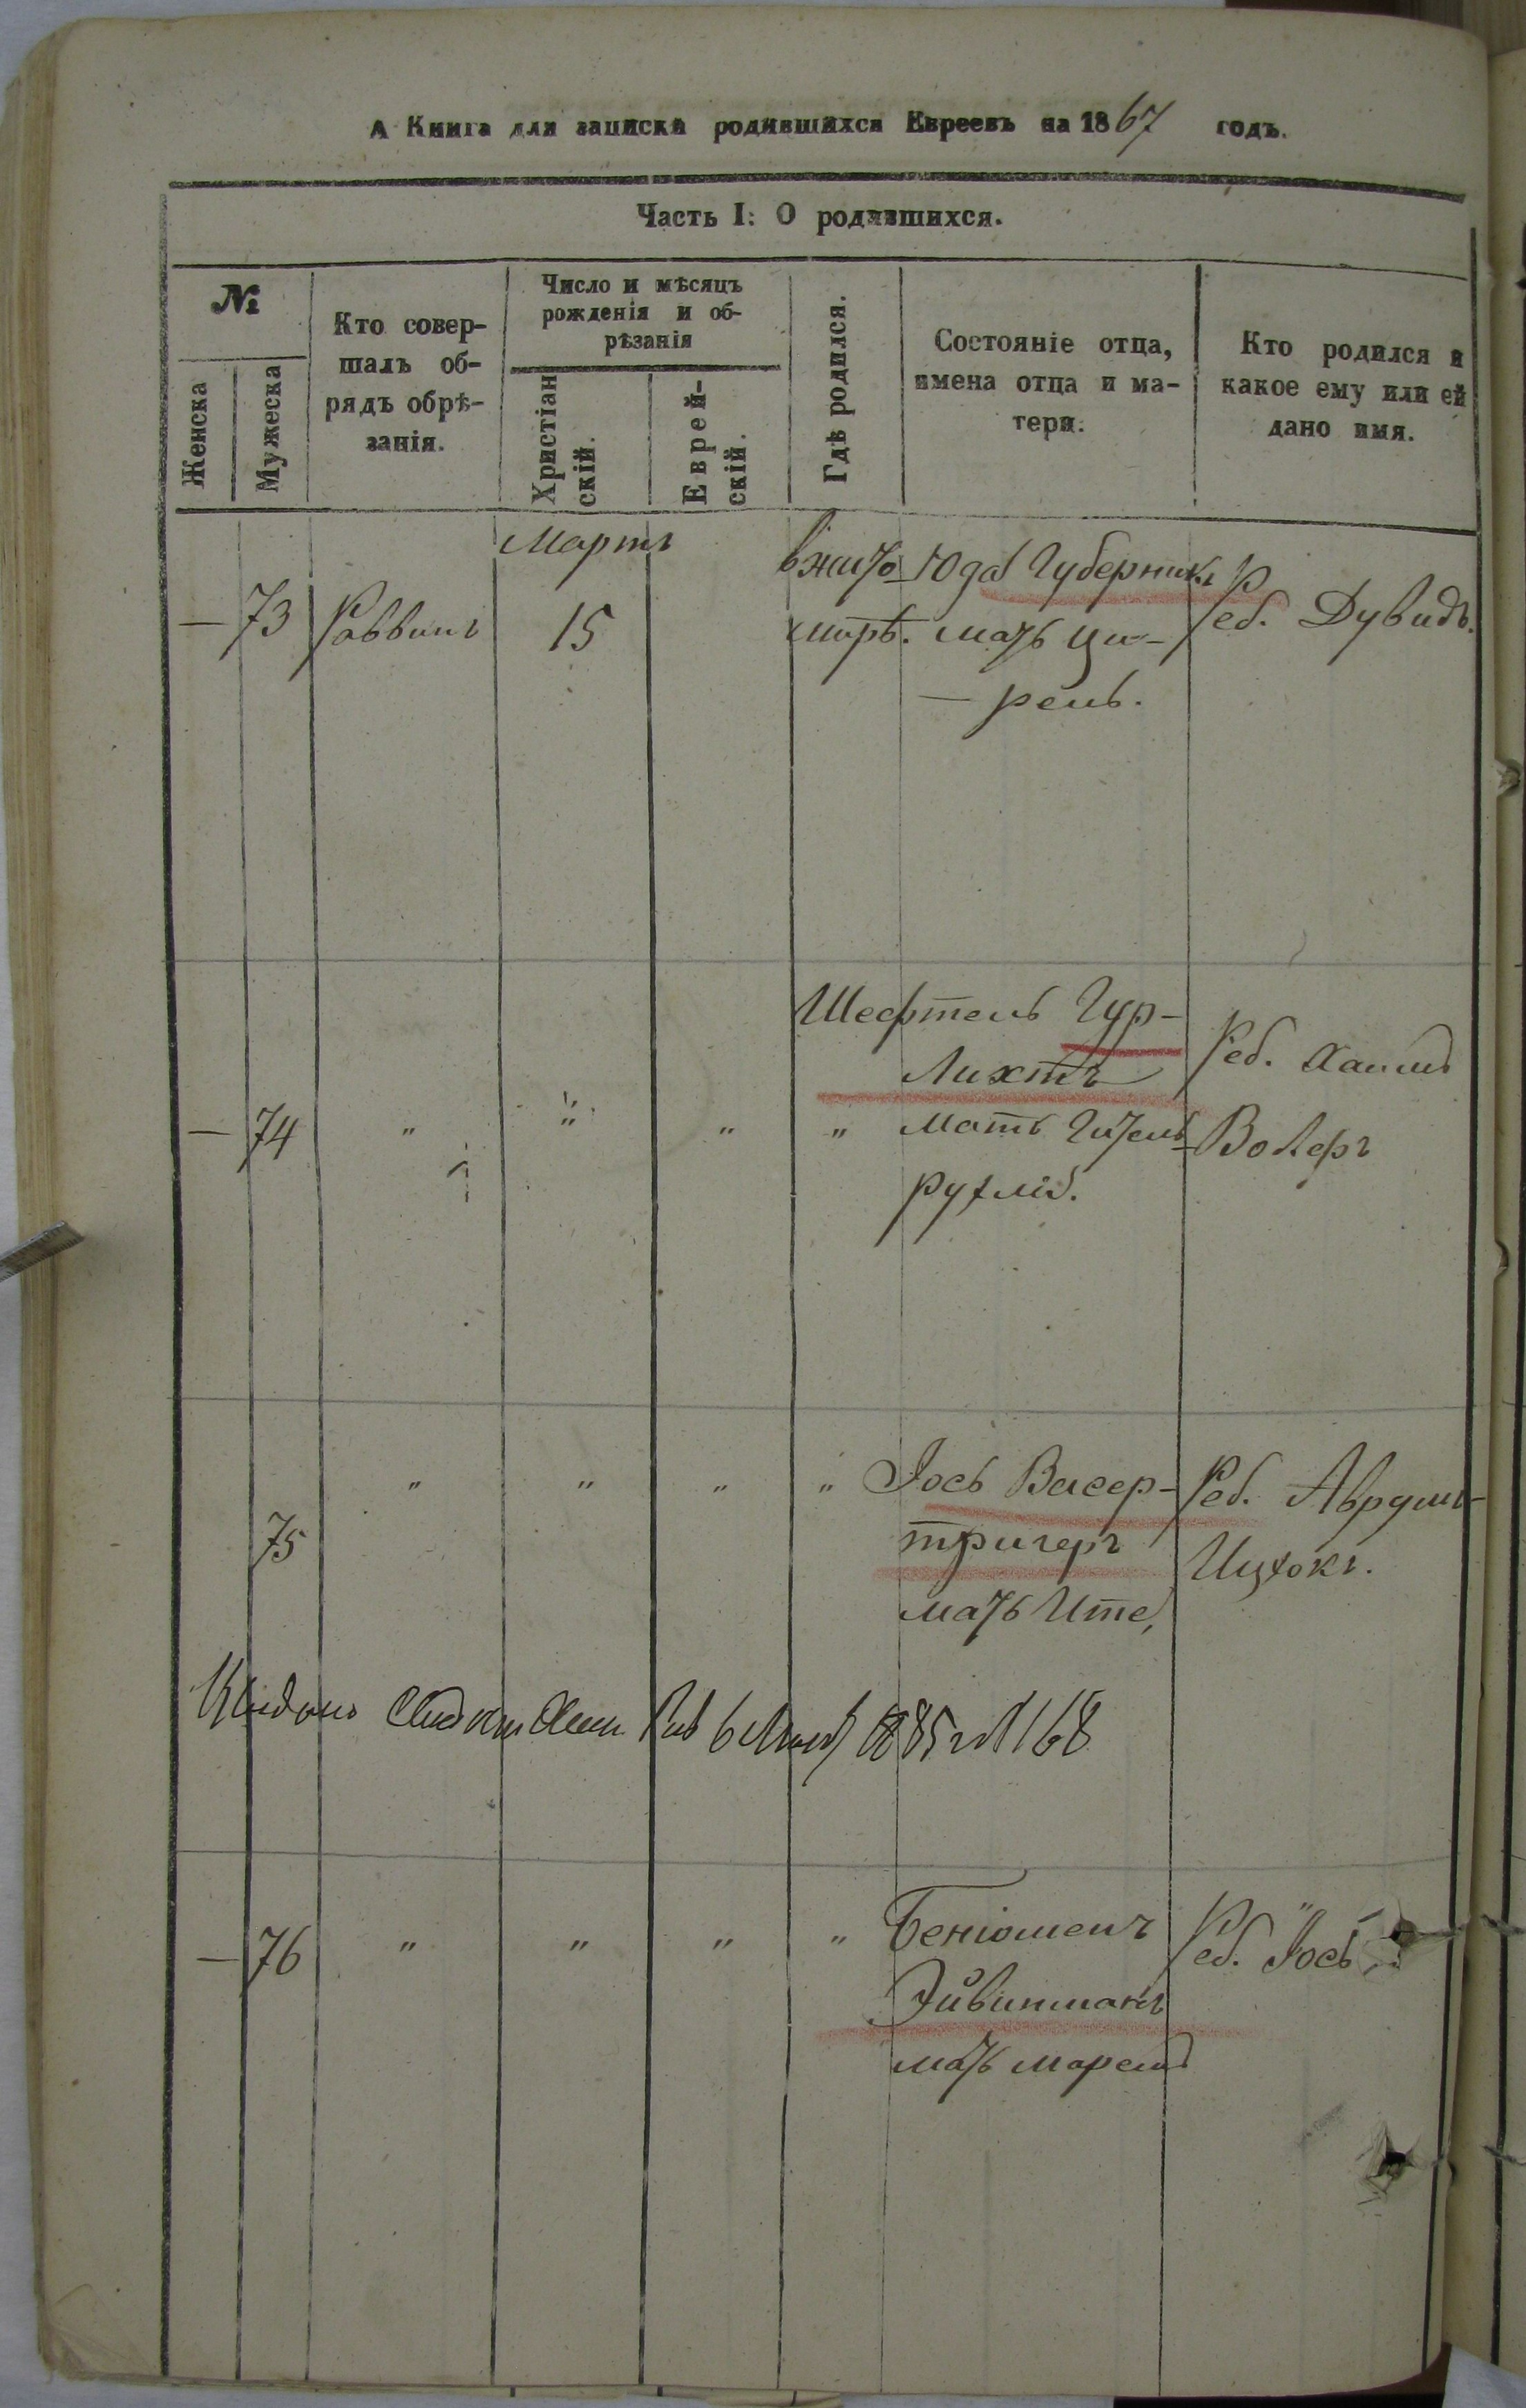 А Книга для записки родившихся Евреевъ на 1867 годъ.
Часть I: О родившихся.
№
Женска
Мужеска
Кто совер-
шалъ об-
рядъ обрѣ-
занія.
Число и мѣсяцъ
рожденія и об-
рѣзанія
Христіан
скій.
Еврей-
скій.
Гдѣ родился.
Состояніе отца,
имена отца и ма-
тери.
Кто родился и
какое ему или ей
дано имя.
Мартъ
— 73 Раввинъ 15
вжито
мирѣ.
Юда Губерникъ
мать Ци-
— рель.
Реб. Дувидъ.
— 74 " " " "
Шефтель Гур-
Лихтъ
мать Гитель
Рухлѣ.
Реб. Хаимъ
Волфъ
75 " " " "
Іось Васер-
тригеръ
мать Ите,
Реб. Аврумъ-
Ицхокъ.
1885 168
— 76 " " " "
Беніоменъ
Эйвинмакъ
мать
Реб. Іось